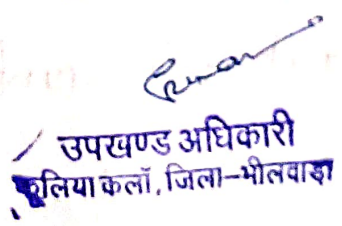 उपखण्ड अधिकारी
फूलिया कलॉ, जिला-भीलवाड़ा